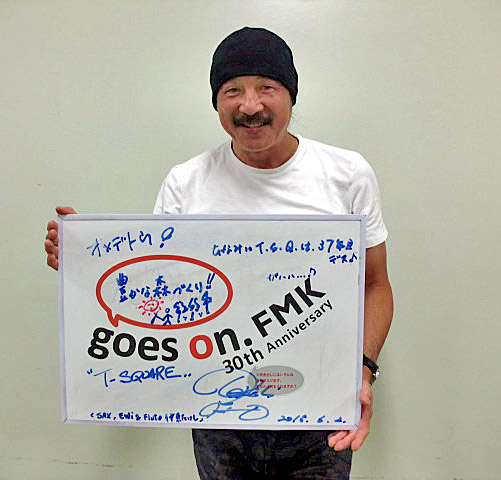 オメデトウ!
ちなみに T.S.Q.は、37年目
デス♪
豊かな森づくり!!
goes on. FMK
30th Anniversary
"T-SQUARE"
(SAX, EWI & Flute 伊東たけし)
2015. 6. 2.